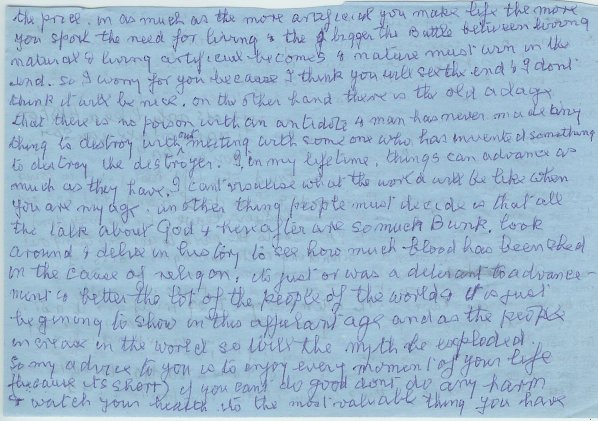 the price. in as much as the more artificial you make life the more
you spoil the need for living & the bigger the Battle between living
natural & living artificial becomes & nature must win in the
end. So I worry for you because I think you will see the end & I dont
think it will be nice. on the other hand there is the old adage
that there is no poison with an antidote & man has never made any
thing to destroy without meeting with someone who has invented something
to destroy the destroyer. If in my lifetime, things can advance as
much as they have, I cant visulise what the world will be like when
you are my age. another thing people must decide is that all
the talk about God & hereafter are so much Bunk. look
around & delve in history to see how much blood has been shed
in the cause of religon, its just or was a deterant to advance-
ment & better the lot of the people of the world & it is just
begining to show in this affulant age and as the people
increase in the world so will the myth be exploded
So my advice to you is to enjoy every moment of your life
(because its short) if you cant do good dont do any harm
& watch your health its the most valuable thing you have